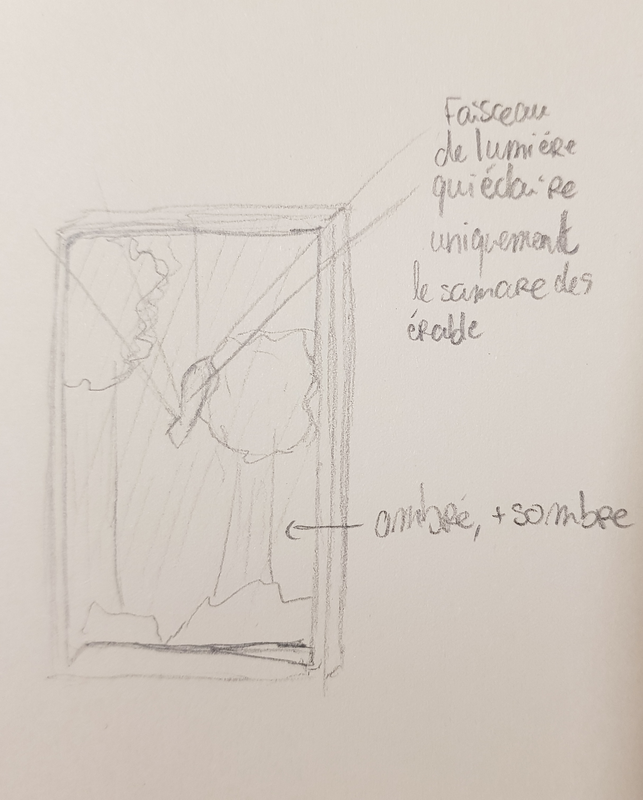 Faisceau
de lumiére
qui éclaire
uniquement
le samare des
érable
ombré, + sombre